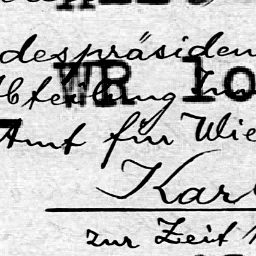 despräsiden
Abteilung
WR 10
Amt für Wie
Kar
zur Zeit